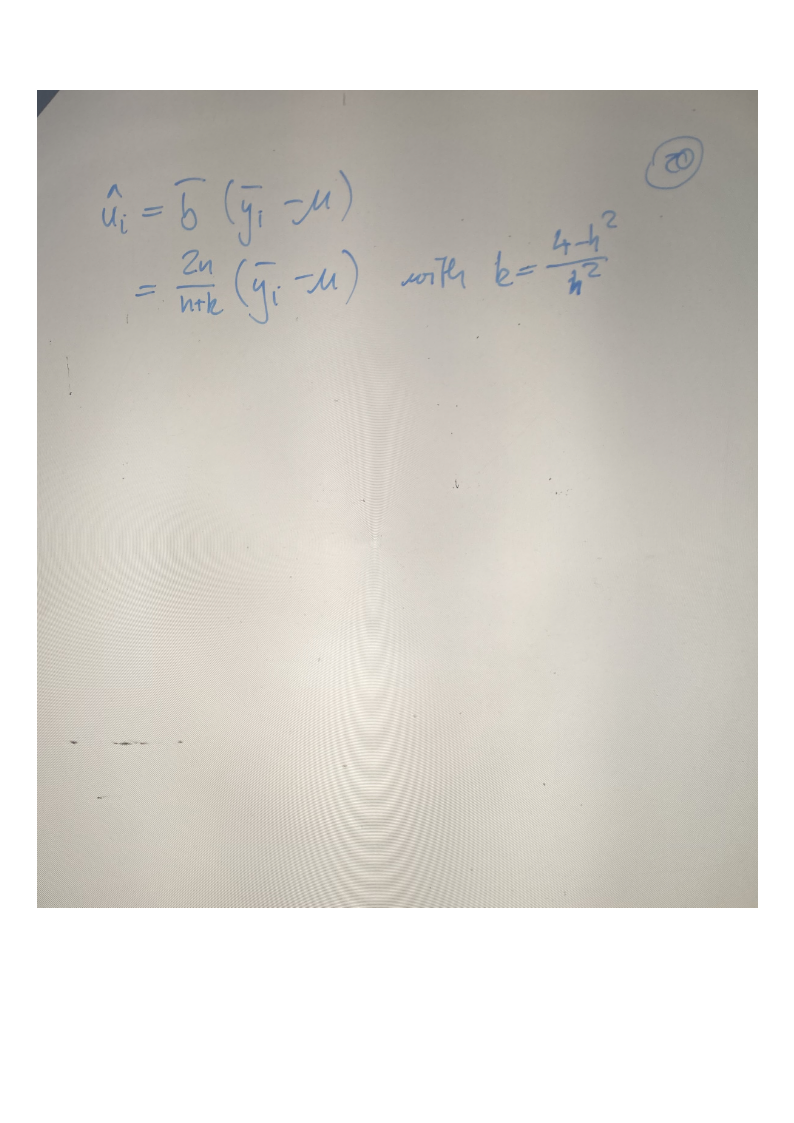 û_i = b̄ (ȳ_i - μ)
= 2n/(n+k) (ȳ_i - μ) with k = (4-h²)/h²